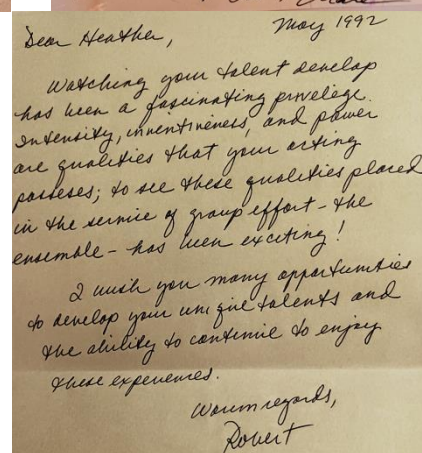 May 1992
Dear Heather,
Watching your talent develop
has been a fascinating privelege.
Intensity, inventiveness, and power
are qualities that your acting
posseses; to see these qualities placed
in the service of group effort - the
ensemble - has been exciting!
I wish you many opportunities
to develop your unique talents and
the ability to continue to enjoy
these experiences.
Warm regards,
Robert